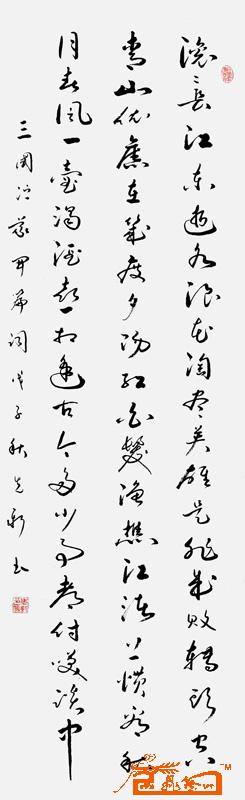 滚滚长江东逝水浪花淘尽英雄是非成败转头空
青山依旧在几度夕阳红白发渔樵江渚上惯看秋
月春风一壶浊酒喜相逢古今多少事都付笑谈中
三国演义开篇词戊子秋
书